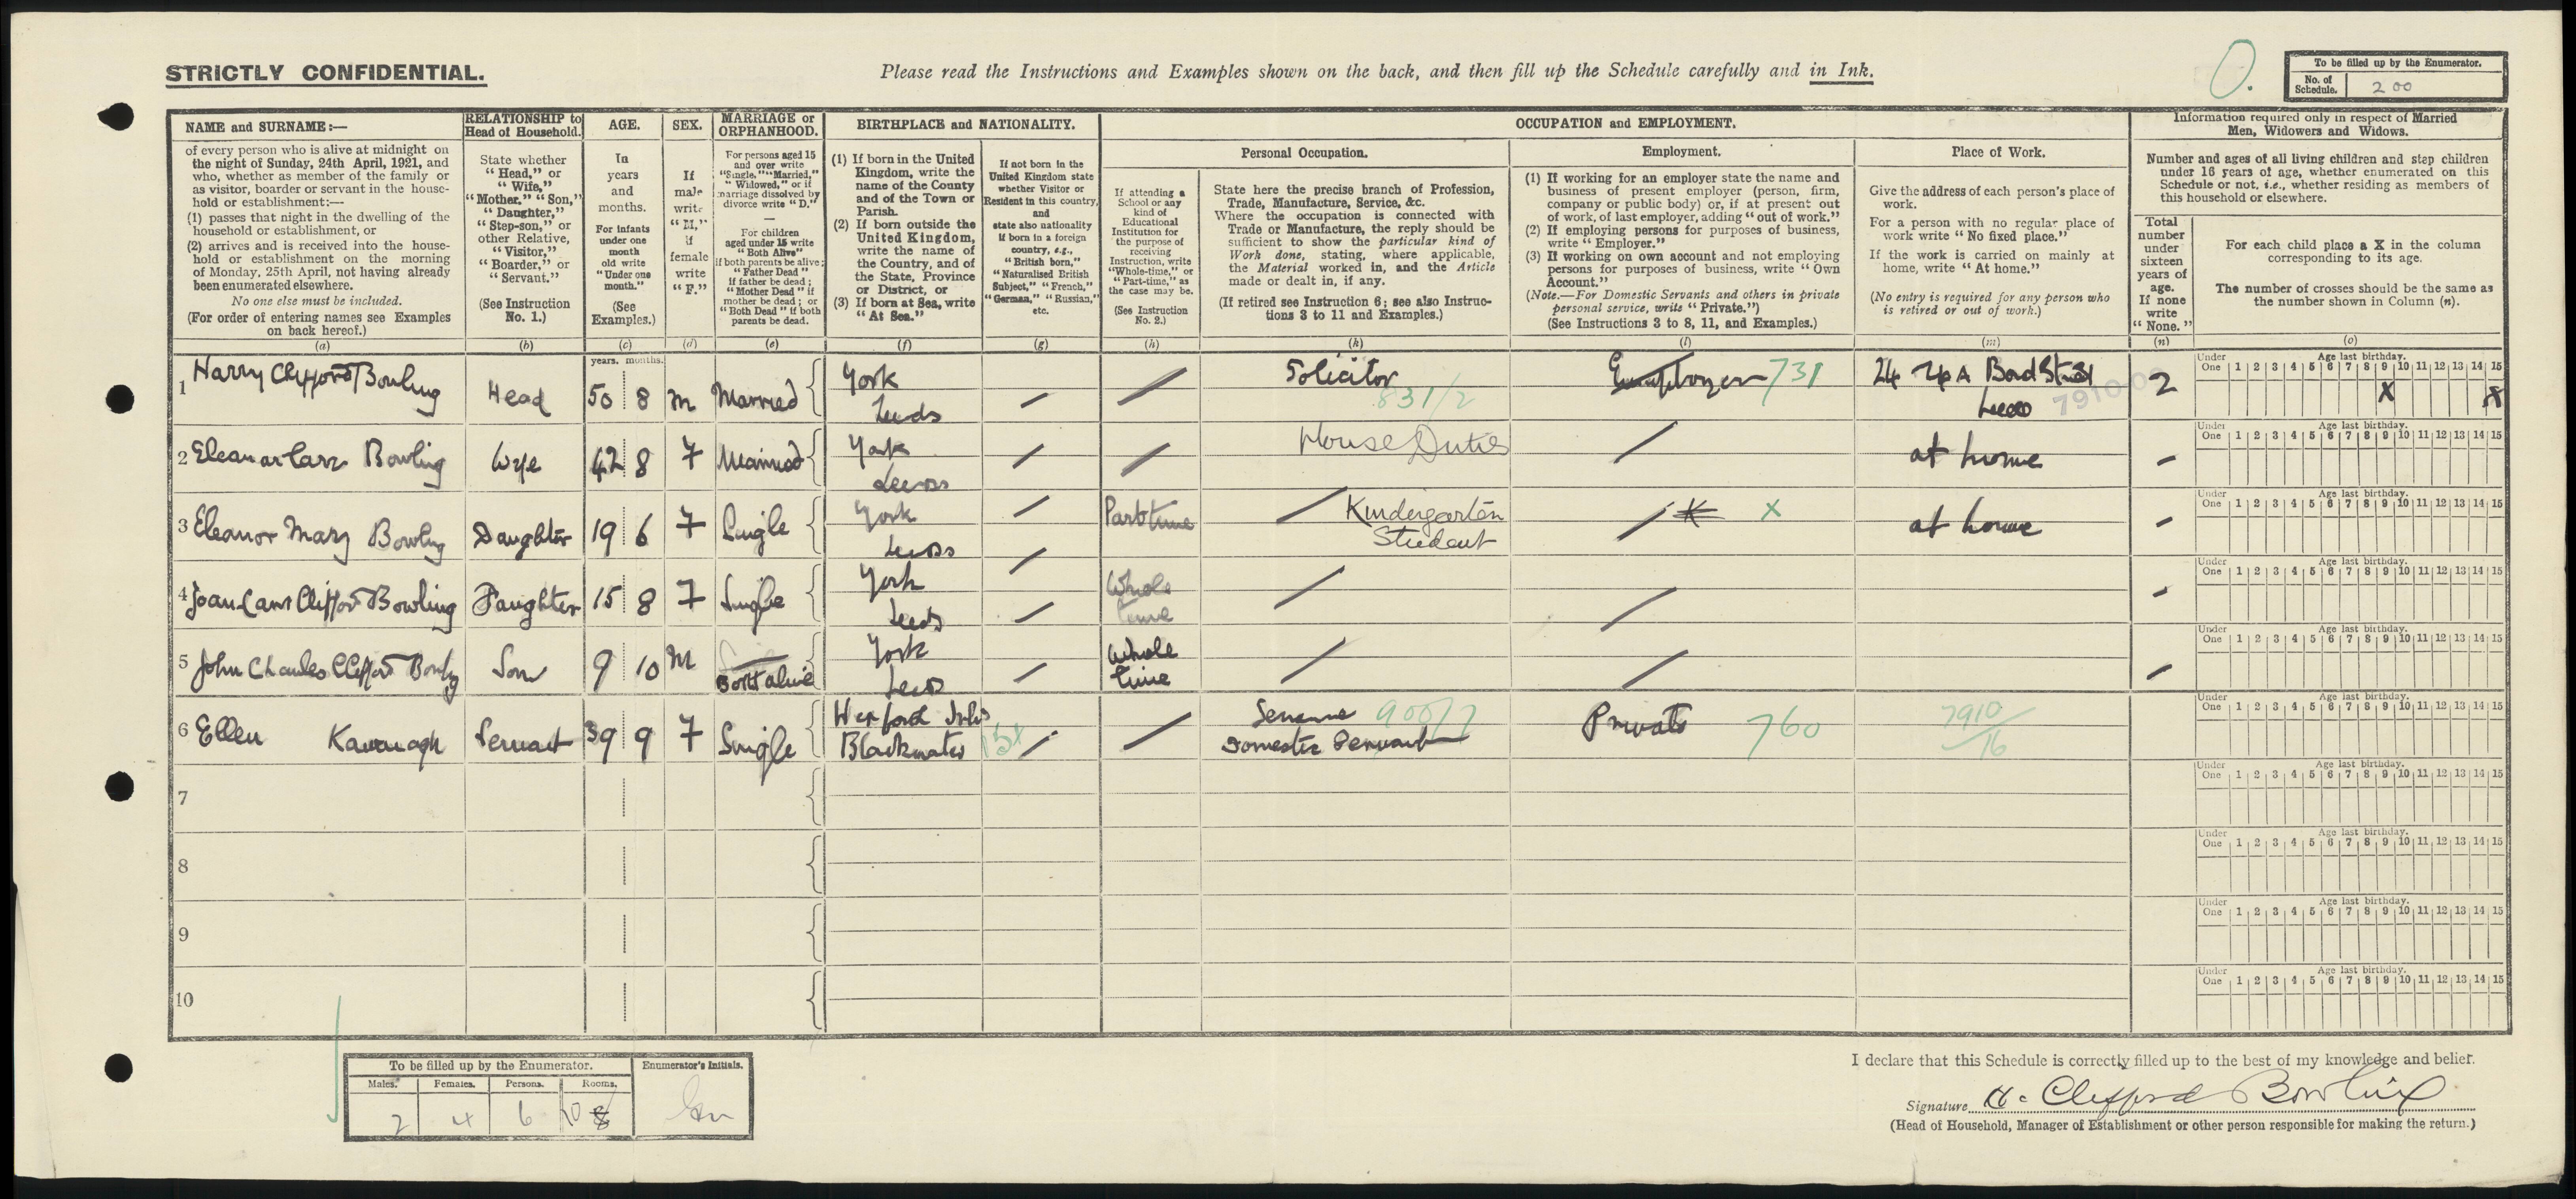 STRICTLY CONFIDENTIAL.
Please read the Instructions and Examples shown on the back, and then fill up the Schedule carefully and in Ink.
0.
To be filled up by the Enumerator.
No. of Schedule. 200
NAME and SURNAME:—
of every person who is alive at midnight on
the night of Sunday, 24th April, 1921, and
who, whether as member of the family or
as visitor, boarder or servant in the house-
hold or establishment:—
(1) passes that night in the dwelling of the
household or establishment, or
(2) arrives and is received into the house-
hold or establishment on the morning
of Monday, 25th April, not having already
been enumerated elsewhere.
No one else must be included.
(For order of entering names see Examples
on back hereof.)
(a)
RELATIONSHIP to
Head of Household.
State whether
"Head," or
"Wife,"
"Mother," "Son,"
"Daughter,"
"Step-son," or
other Relative,
"Visitor,"
"Boarder," or
"Servant."
(See Instruction
No. 1.)
(b)
AGE.
In
years
and
months.
For infants
under one
month
old write
"Under one
month."
(See
Examples.)
(c)
SEX.
If
male
write
"M,"
if
female
write
"F."
(d)
MARRIAGE or
ORPHANHOOD.
For persons aged 15
and over write
"Single," "Married,"
"Widowed," or if
marriage dissolved by
divorce write "D."
—
For children
aged under 15 write
"Both Alive"
if both parents be alive;
"Father Dead"
if father be dead;
"Mother Dead" if
mother be dead; or
"Both Dead" if both
parents be dead.
(e)
BIRTHPLACE and NATIONALITY.
(1) If born in the United
Kingdom, write the
name of the County
and of the Town or
Parish.
(2) If born outside the
United Kingdom,
write the name of
the Country, and of
the State, Province
or District, or
(3) If born at Sea, write
"At Sea."
(f)
If not born in the
United Kingdom state
whether Visitor or
Resident in this country,
and
state also nationality
if born in a foreign
country, e.g.,
"British born,"
"Naturalised British
Subject," "French,"
"German," "Russian,"
etc.
(g)
OCCUPATION and EMPLOYMENT.
Personal Occupation.
If attending a
School or any
kind of
Educational
Institution for
the purpose of
receiving
Instruction, write
"Whole-time," or
"Part-time," as
the case may be.
(See Instruction
No. 2.)
(h)
State here the precise branch of Profession,
Trade, Manufacture, Service, &c.
Where the occupation is connected with
Trade or Manufacture, the reply should be
sufficient to show the particular kind of
Work done, stating, where applicable,
the Material worked in, and the Article
made or dealt in, if any.
(If retired see Instruction 6; see also Instruc-
tions 3 to 11 and Examples.)
(k)
Employment.
(1) If working for an employer state the name and
business of present employer (person, firm,
company or public body) or, if at present out
of work, of last employer, adding "out of work."
(2) If employing persons for purposes of business,
write "Employer."
(3) If working on own account and not employing
persons for purposes of business, write "Own
Account."
(Note.—For Domestic Servants and others in private
personal service, write "Private.")
(See Instructions 3 to 8, 11, and Examples.)
(l)
Place of Work.
Give the address of each person's place of
work.
For a person with no regular place of
work write "No fixed place."
If the work is carried on mainly at
home, write "At home."
(No entry is required for any person who
is retired or out of work.)
(m)
Information required only in respect of Married
Men, Widowers and Widows.
Number and ages of all living children and step children
under 16 years of age, whether enumerated on this
Schedule or not, i.e., whether residing as members of
this household or elsewhere.
Total
number
under
sixteen
years of
age.
If none
write
"None."
(n)
For each child place a X in the column
corresponding to its age.
The number of crosses should be the same as
the number shown in Column (n).
(o)
years. months.
Under One Age last birthday. 1 2 3 4 5 6 7 8 9 10 11 12 13 14 15
1 Harry Clifford Bowling Head 50 8 M Married York Leeds Solicitor 831/2 Employer 731 24 Bond Street Leeds 2 X X
2 Eleanor Carr Bowling Wife 42 8 F Married York Leeds House Duties at home
3 Eleanor Mary Bowling Daughter 19 6 F Single York Leeds Part time Kindergarten Student X at home
4 Joan Carr Clifford Bowling Daughter 15 8 F Single York Leeds Whole time
5 John Charles Clifford Bowling Son 9 10 M Both alive York Leeds Whole time
6 Ellen Kavanagh Servant 39 9 F Single Wexford Blackwater Domestic Servant 900/7 Private 760 7910/16
7
8
9
10
To be filled up by the Enumerator.
Males. Females. Persons. Rooms.
2 4 6 10
Enumerator's Initials.
I declare that this Schedule is correctly filled up to the best of my knowledge and belief.
Signature H. Clifford Bowling
(Head of Household, Manager of Establishment or other person responsible for making the return.)